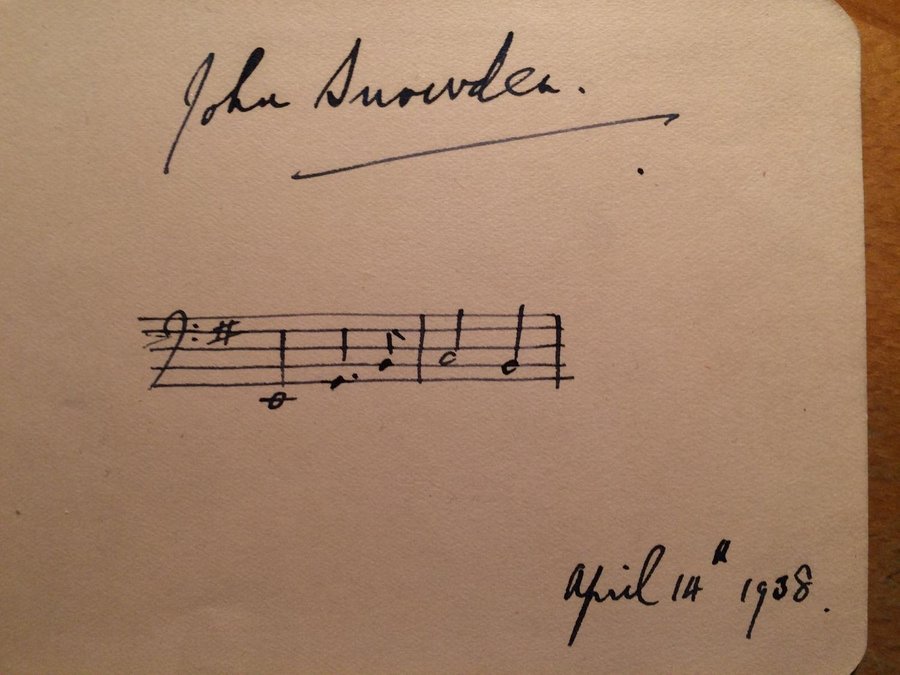 John Snowden.
April 14th 1938.